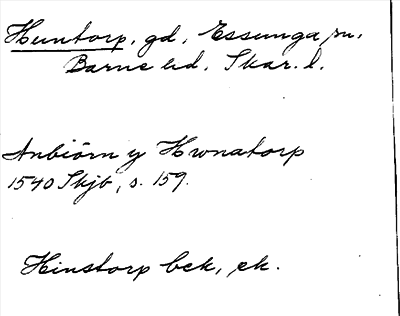 Huntorp, gd, Essunga sn,
Barne hd, Skar. l.
Anbiörn y Hwnatorp
1540 Skjb, s. 159.
Hinstorp bck, ek.